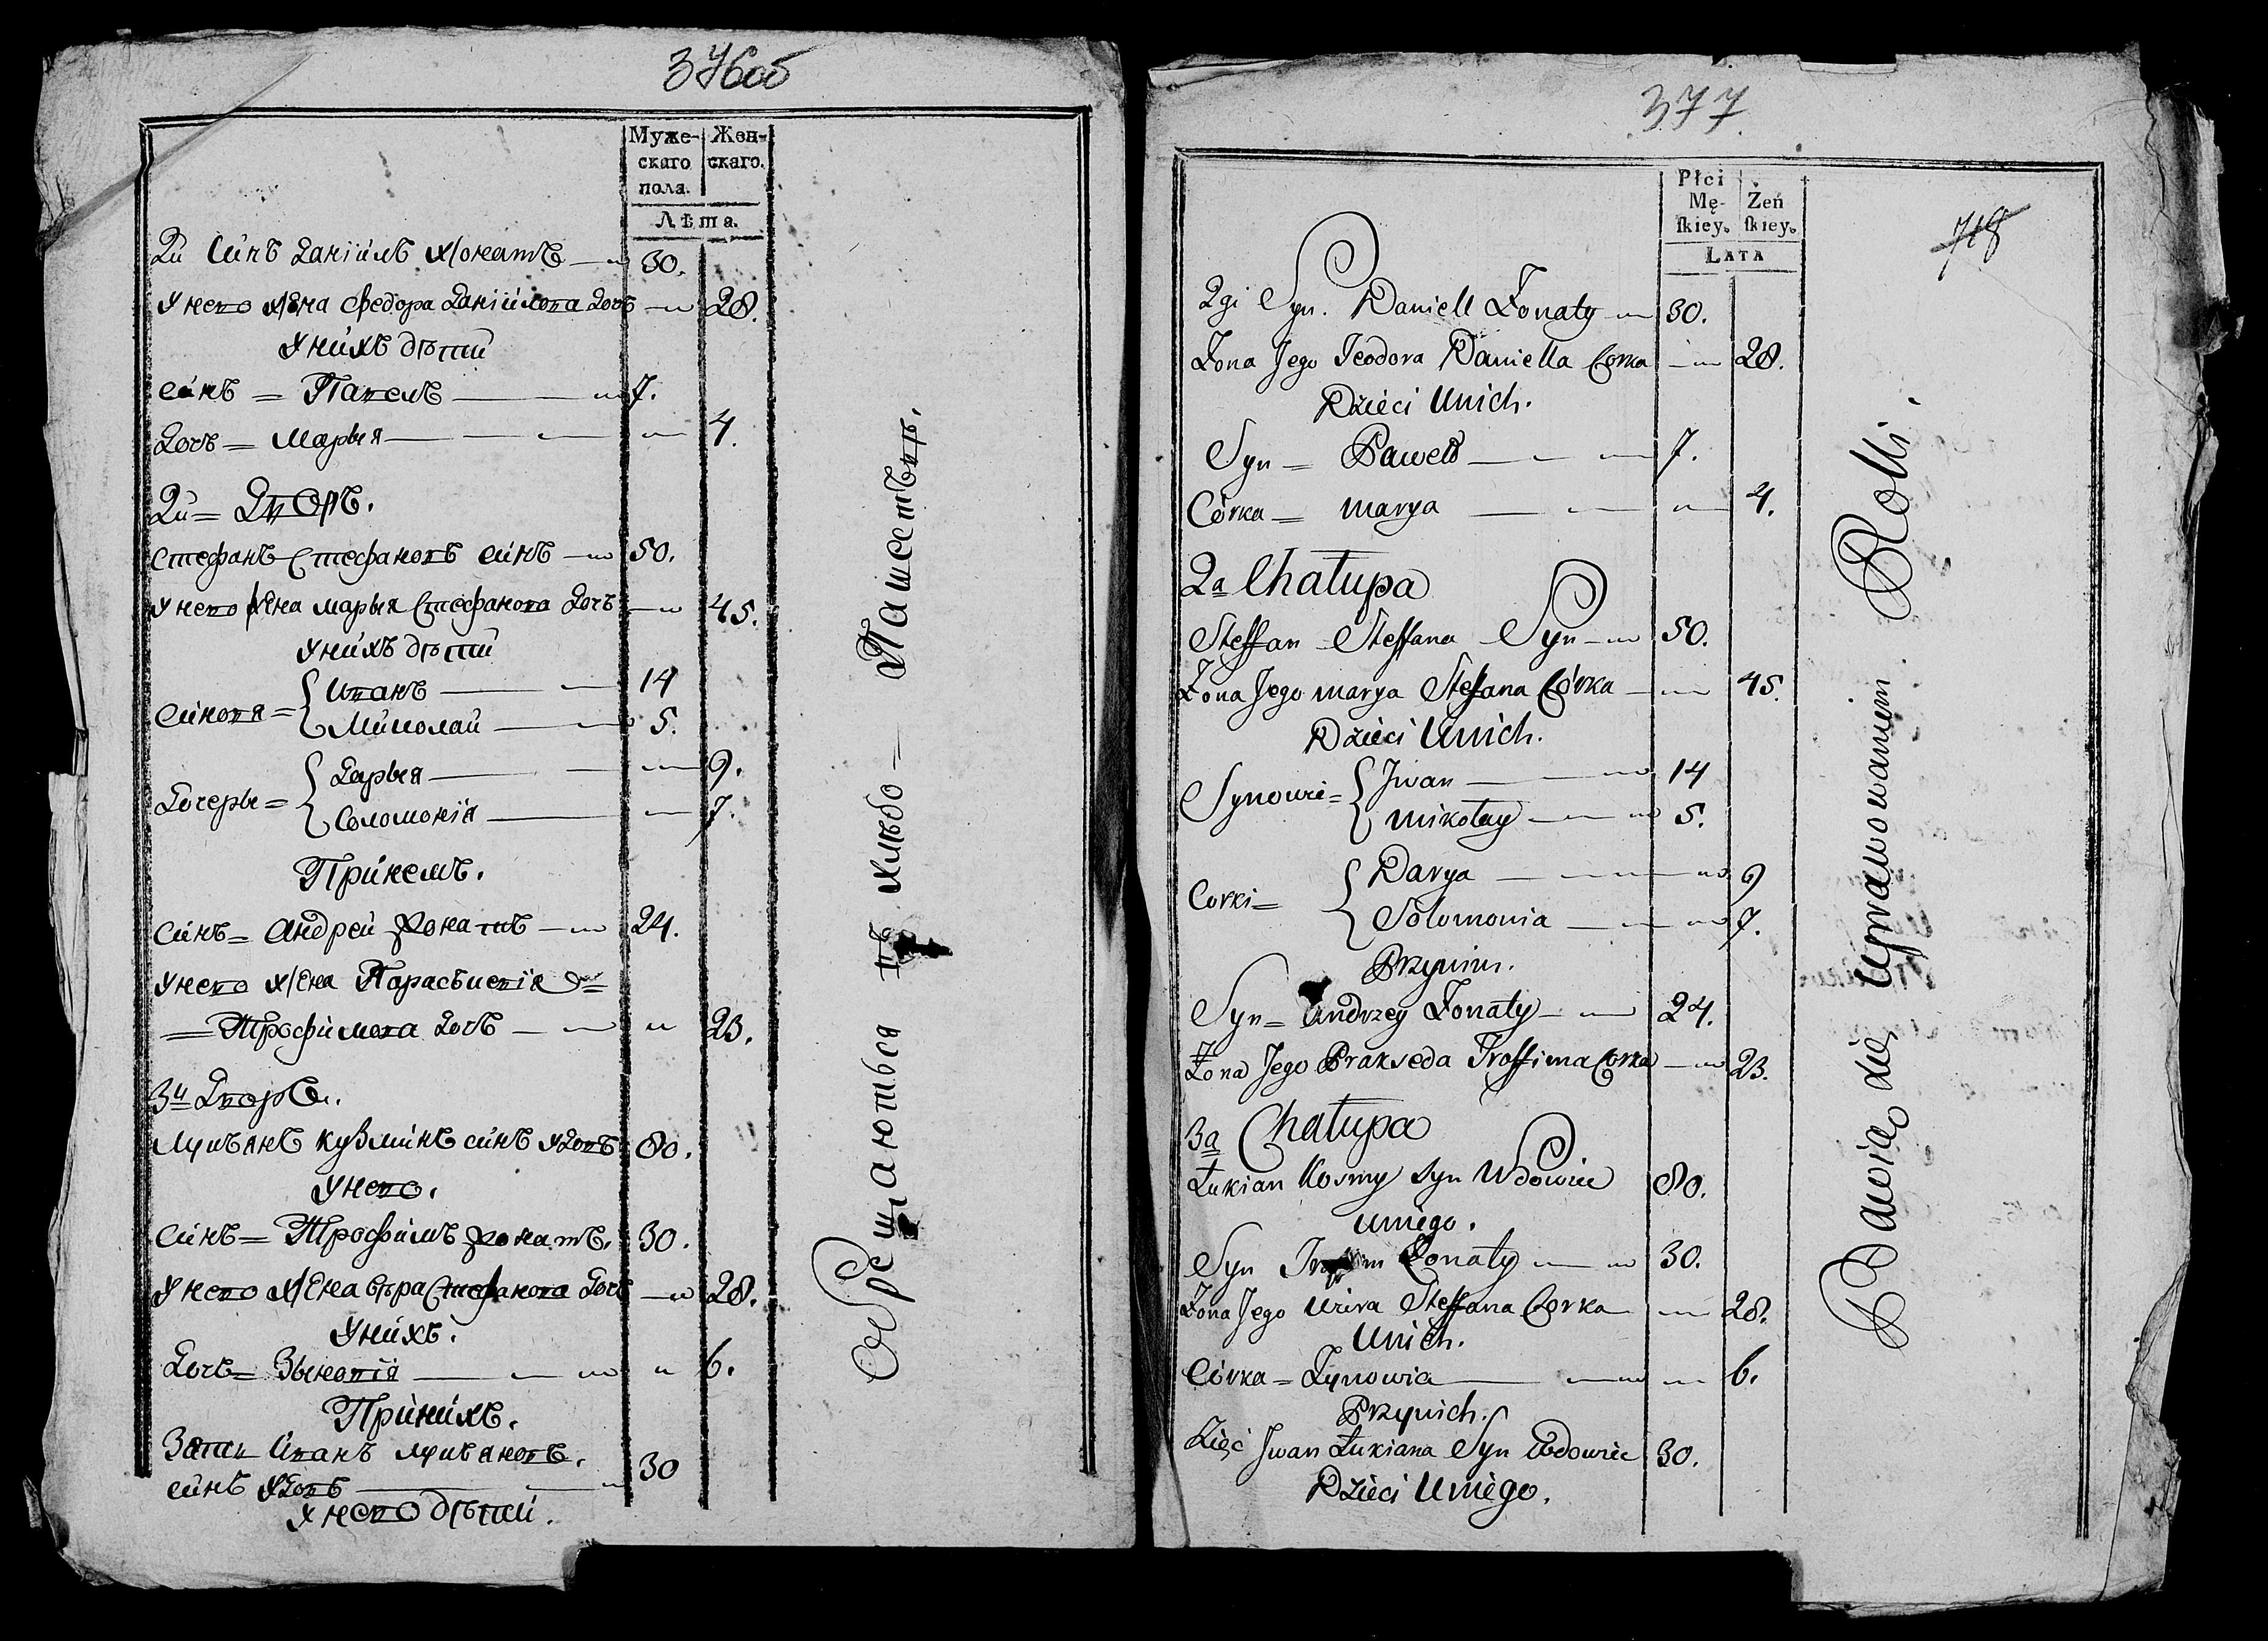 376об
Муже-
скаго
пола.
Жен-
скаго.
Лѣта.
2й Синъ Даніилъ Жонатъ 30.
У него Жена Федора Даніилова Дочь 28.
У нихъ дѣти
Синъ = Павелъ 7.
Дочь = Марья 4.
2й = Дворъ.
Стефанъ Стефановъ синъ 50.
У него Жена Марья Стефанова Дочь 45.
У нихъ дѣти
Синовя = Иванъ 14
Миколай 5.
Дочеры = Дарья 9.
Соломонія 7.
При немъ.
Синъ = Андрей Жонатъ 24.
У него Жена Парасъкевія
= Трофимова Дочь 23.
3й Дворъ.
Лукъянъ Кузминъ синъ Удовъ 80.
У него.
Синъ = Трофимъ Жонатъ. 30.
У него Жена Вѣра Стефанова Дочь 28.
У нихъ.
Дочь = Зыновія 6.
При нихъ.
Зять Иванъ Лукъяновъ.
синъ Удовъ 30
У него дѣти.
Обрещаються въ хлѣбо = Пашествѣ.
377
Płci
Mę-
ſkiey.
Żeń
ſkiey.
LATA
718
2gi Syn. Daniell Żonaty 30.
Żona Jego Teodora Daniella Corka 28.
Dzieci Unich.
Syn = Paweł 7.
Córka = Marya 4.
2a Chałupa
Steffan Steffana Syn 50.
Żona Jego Marya Stefana Córka 45.
Dzieci Unich.
Synowie = Jwan 14
Mikołay 5.
Corki = Darya 9
Solomonia 7.
Przynim.
Syn = Andrzey Żonaty 24.
Żona Jego Prakseda Troffima Corka 23.
3a Chałupa
Łukian Kosmy Syn Wdowiec 80.
Uniego.
Syn Żonaty 30.
Żona Jego Wiera Steffana Corka 28.
Unich.
Córka = Zynowia 6.
Przynich.
Zięć Jwan Łukiana Syn Wdowiec 30.
Dzieci Uniego.
Bawią się Uprawowaniem Rolli.